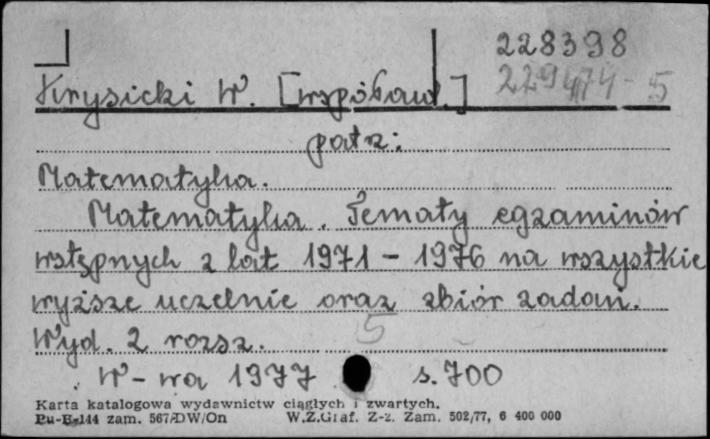 228398
229474-5
Krysicki W. [współaut.]
patrz:
Matematyka.
Matematyka. Tematy egzaminów
wstępnych z lat 1971 - 1976 na wszystkie
wyższe uczelnie oraz zbiór zadań.
5
Wyd. 2 rozsz.
W-wa 1977 s. 700
Karta katalogowa wydawnictw ciągłych i zwartych.
Pu-B-144 zam. 567/DW/On W.Z.Graf. Z-2. Zam. 502/77, 6 400 000